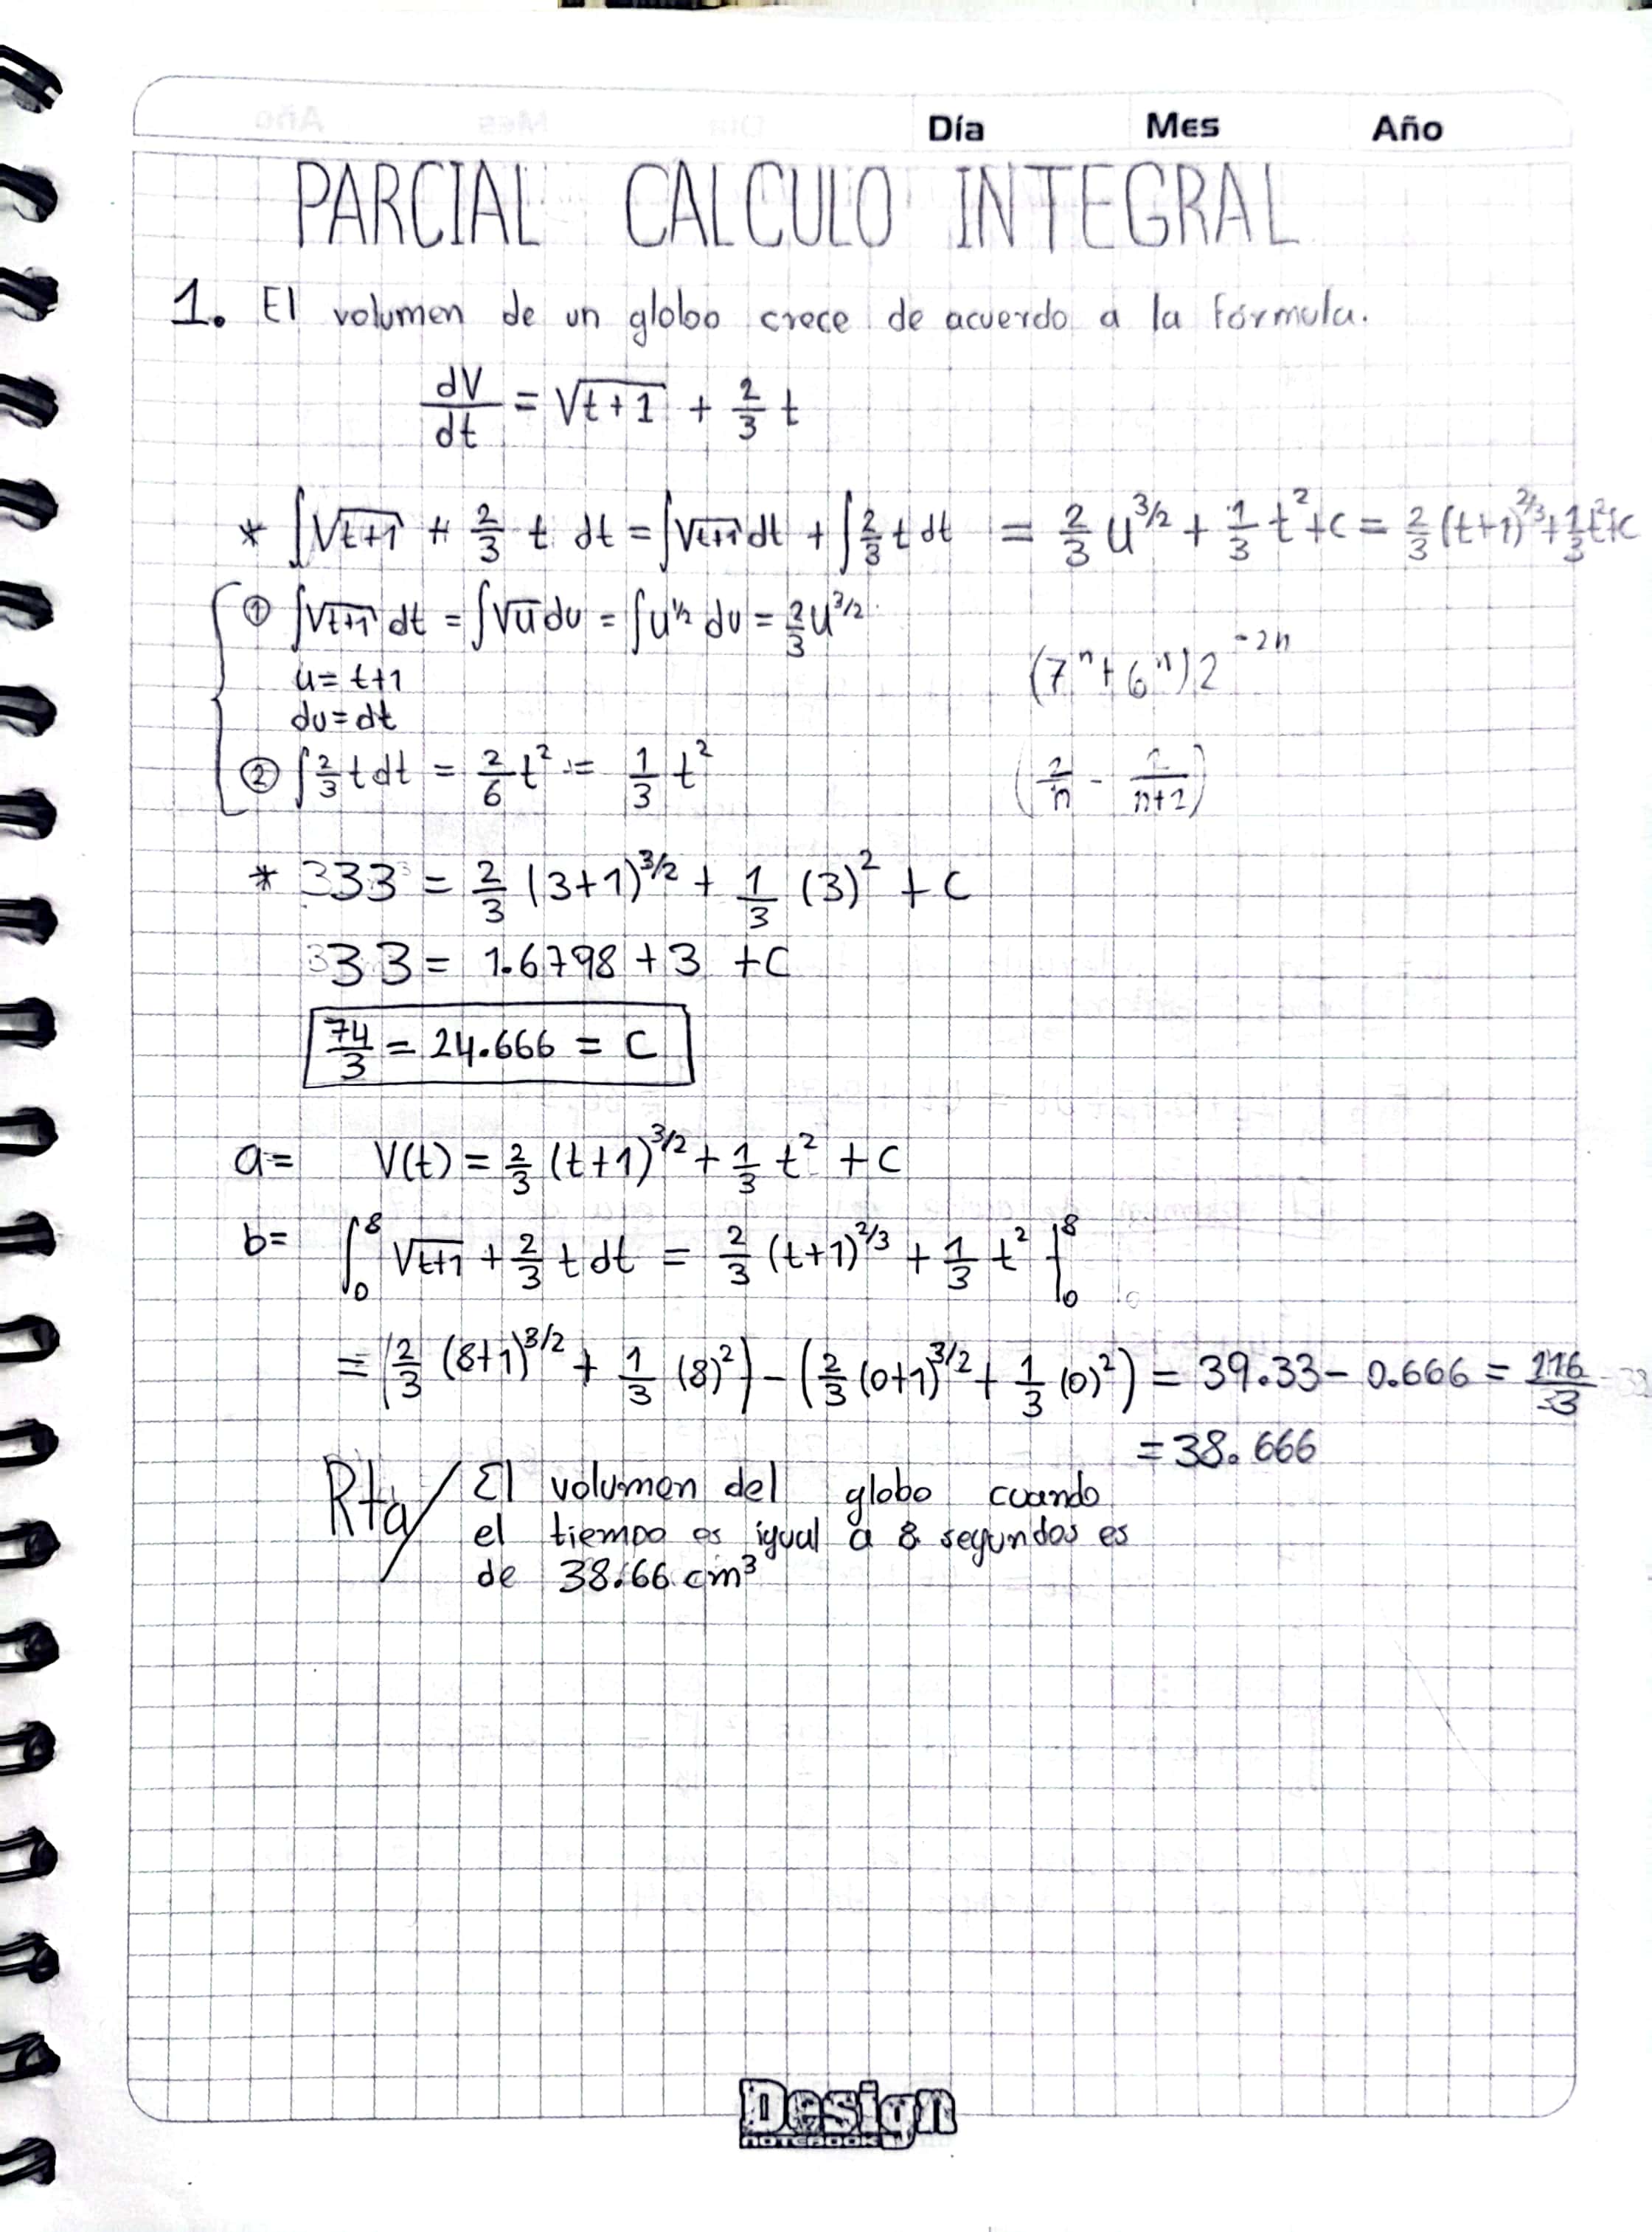 Día Mes Año
PARCIAL CALCULO INTEGRAL
1. El volumen de un globo crece de acuerdo a la fórmula.
dV/dt = √(t+1) + 2/3 t
* ∫√(t+1) + 2/3 t dt = ∫√(t+1) dt + ∫2/3 t dt = 2/3 u^3/2 + 1/3 t² + c = 2/3 (t+1)^2/3 + 1/3 t² + c
① ∫√(t+1) dt = ∫√u du = ∫u^1/2 du = 2/3 u^3/2
u = t+1
du = dt
(7^n + 6^n) 2^-2n
② ∫2/3 t dt = 2/6 t² = 1/3 t²
(2/n - 2/(n+2))
* 333 = 2/3 (3+1)^3/2 + 1/3 (3)² + C
333 = 1.6798 + 3 + C
74/3 = 24.666 = C
a= V(t) = 2/3 (t+1)^3/2 + 1/3 t² + C
b= ∫₀⁸ √(t+1) + 2/3 t dt = 2/3 (t+1)^2/3 + 1/3 t² |₀⁸
= (2/3 (8+1)^3/2 + 1/3 (8)²) - (2/3 (0+1)^3/2 + 1/3 (0)²) = 39.33 - 0.666 = 116/3
= 38.666
Rta/ El volumen del globo cuando
el tiempo es igual a 8 segundos es
de 38.66 cm³
Design
NOTEBOOK